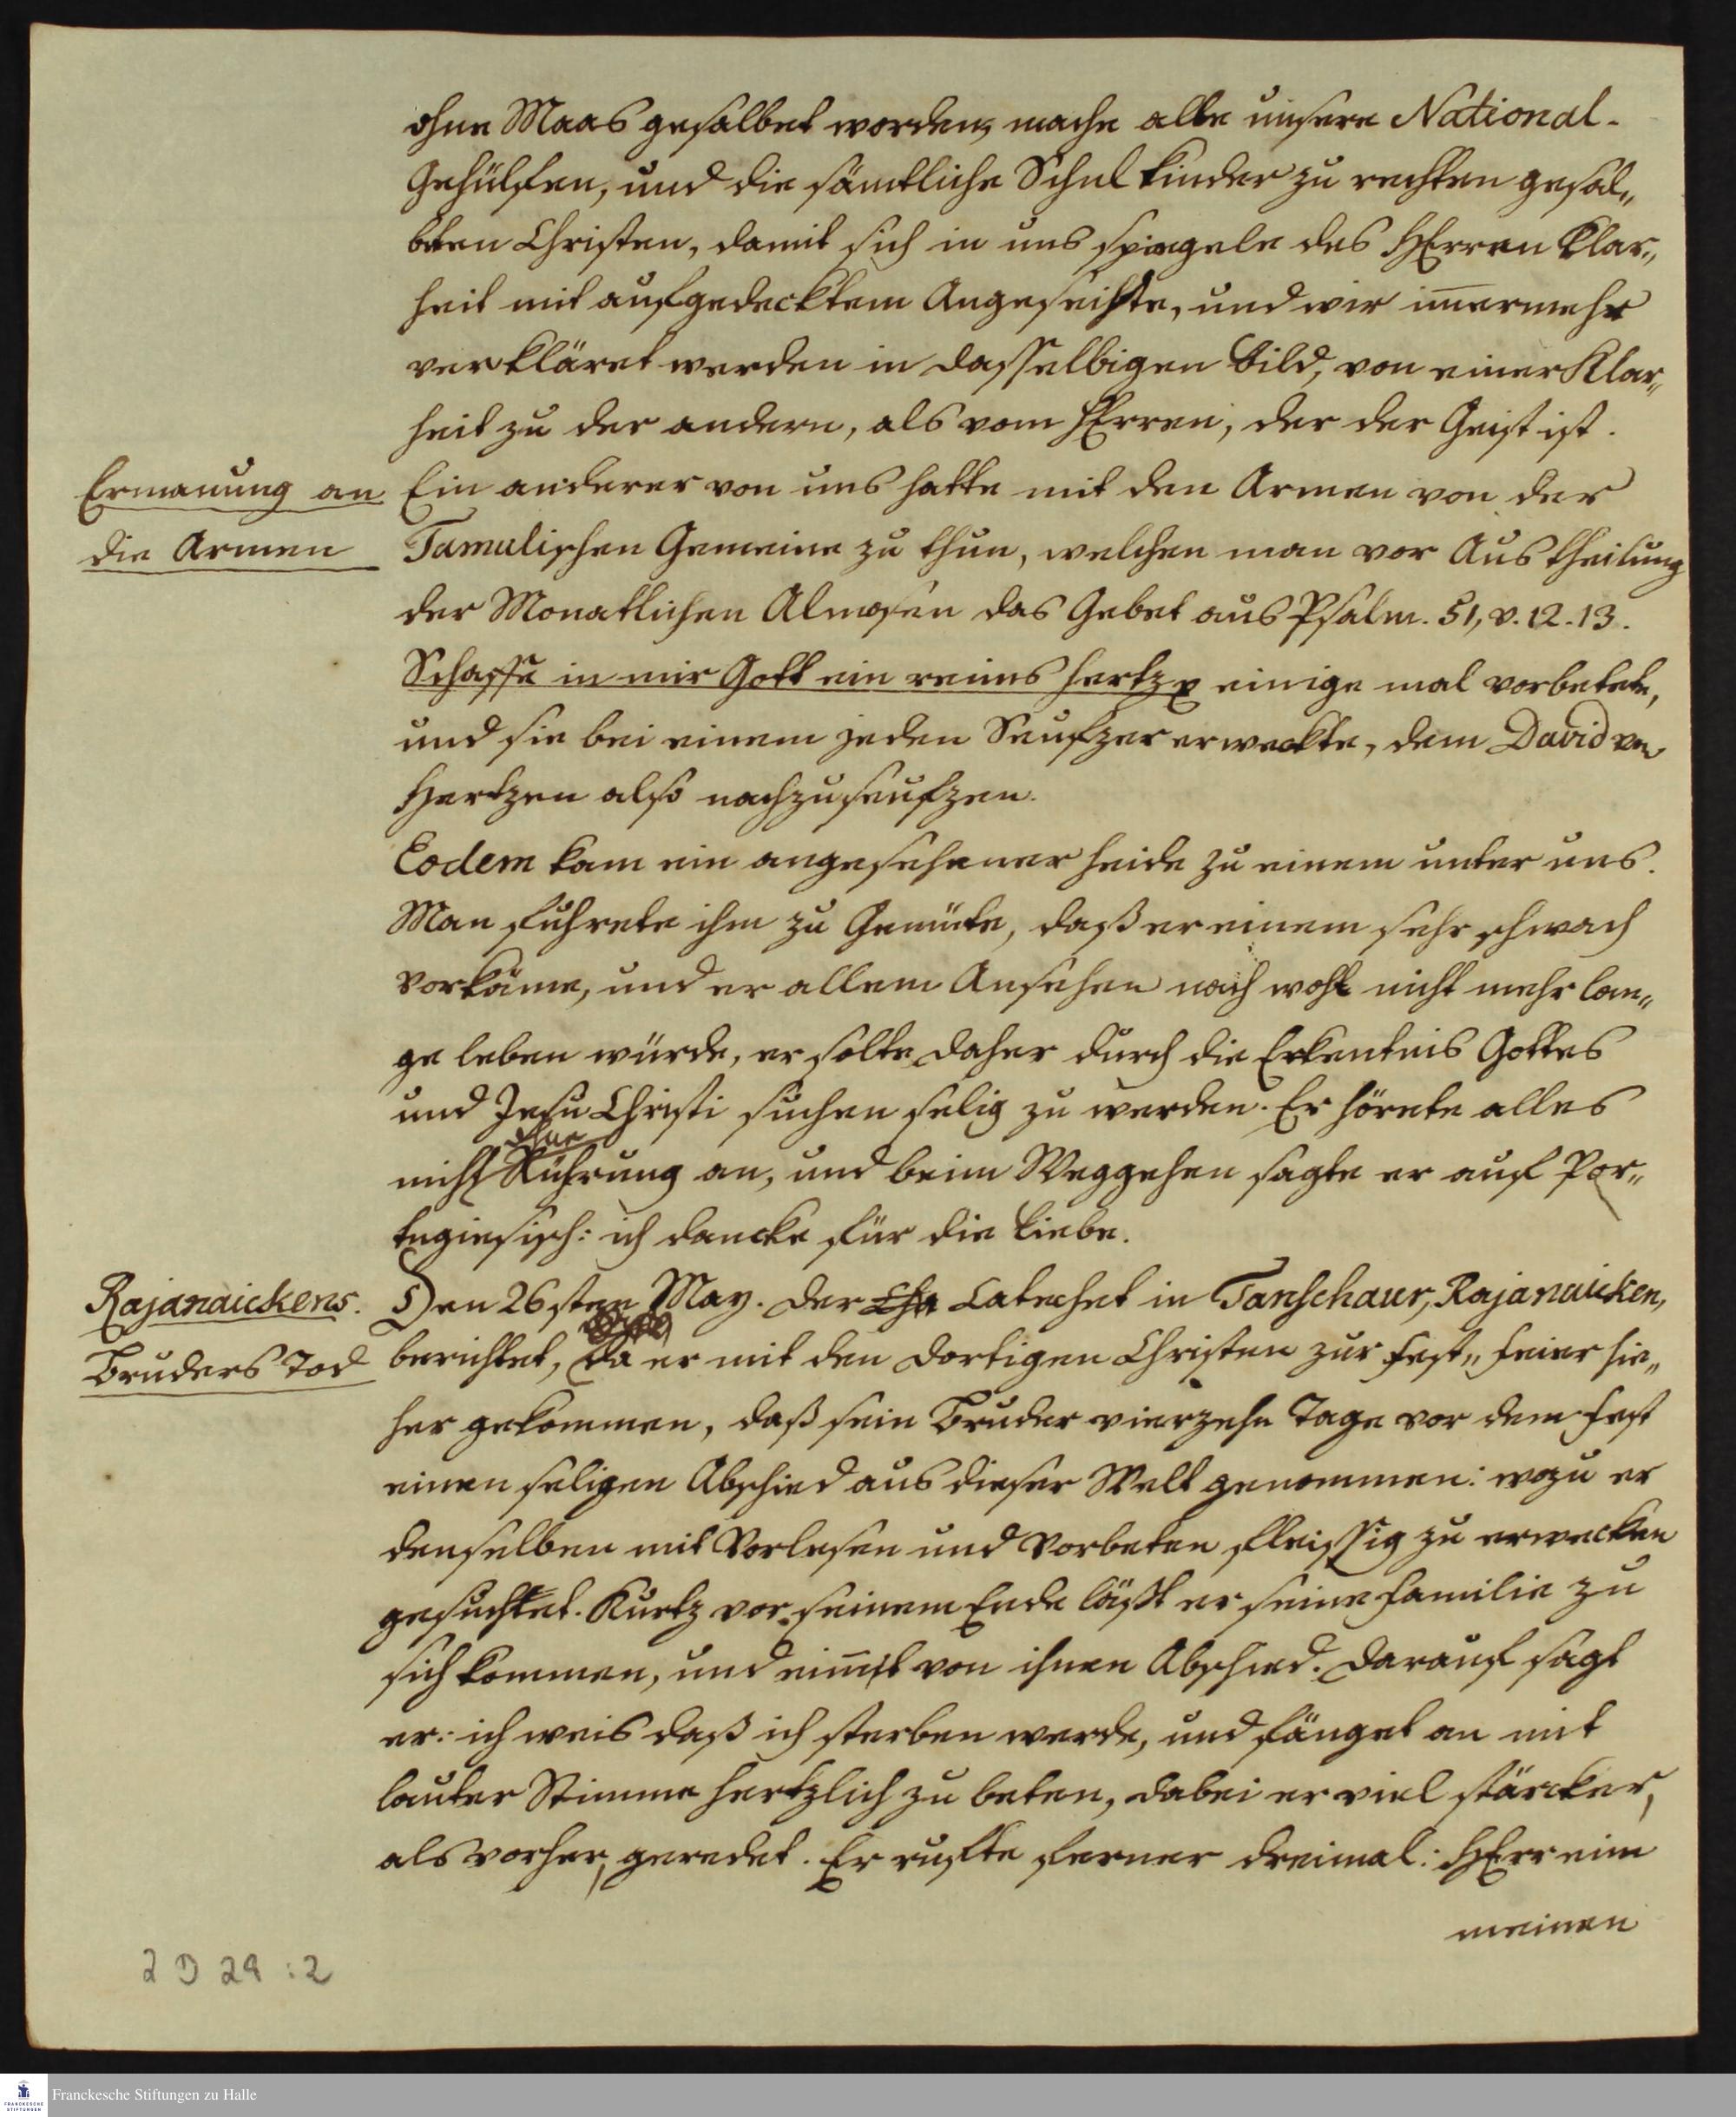 ohne Maas gesalbet worden, mache alle unsere National-
Gehülfen, und die sämtliche Schul kinder zu rechten gesal„
bten Christen, damit sich in uns spiegele des HErren Klar„
heit mit aufgedecktem Angesichte, und wir im̅ermehr
verkläret werden in dasselbigen Bild, von einer Klar„
heit zu der andern, als vom HErren, der der Geist ist.
Ermanung an
die Armen
Ein anderer von uns hatte mit den Armen von der
Tamulischen Gemeine zu thun, welchen man vor Austheilung
der Monatlichen Almosen das Gebet aus Psalm. 51, v. 12.13.
Schaffe in mir Gott ein reines Hertz einige mal vorbetete,
und sie bei einem jeden Seufzer erweckte, dem David von
Hertzen also nachzuseufzen.
Eodem kam ein angesehener Heide zu einem unter uns.
Man führete ihm zu Gemüte, daß er einem sehr schwach
vorkäme, und er allem Ansehen nach wohl nicht mehr lan„
ge leben würde, er solte daher durch die Erkentnis Gottes
und Jesu Christi suchen selig zu werden. Er hörete alles
nicht ohne Rührung an, und beim Weggehen sagte er auf Por„
tugiesisch: ich dancke für die Liebe.
Rajanaickens.
Bruders Tod
Den 26sten May. Der Catechet in Tanschaur, Rajanaicken,
berichtet, da er mit den dortigen Christen zur Fest„ feier hie„
her gekommen, daß sein Bruder vierzehn Tage vor dem Fest
einen seligen Abschied aus dieser Welt genommen: wozu er
denselben mit Vorlesen und Vorbeten fleissig zu erwecken
gesuchtet. Kurtz vor seinem Ende läßt er seine Familie zu
sich kommen, und nim̅t von ihnen Abschied. Darauf sagt
er: ich weis daß ich sterben werde, und fänget an mit
lauter Stimme hertzlich zu beten, dabei er viel stärcker,
als vorher, geredet. Er rufte ferner dreimal: HErr nim
meinen
2 D 29 : 2
Franckesche Stiftungen zu Halle
FRANCKESCHE
STIFTUNGEN